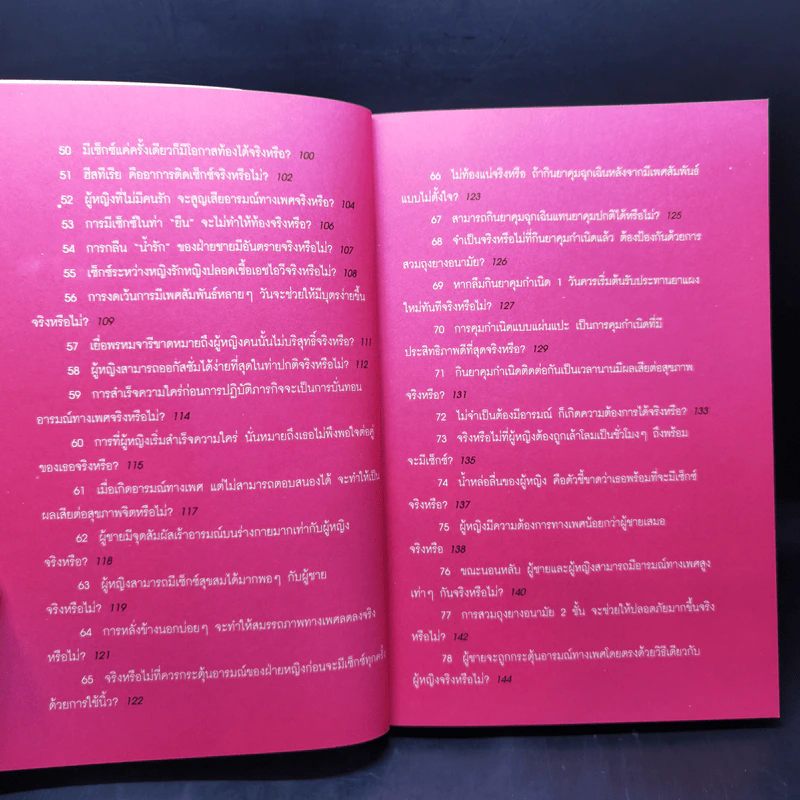 50 มีเซ็กซ์แค่ครั้งเดียวก็มีโอกาสท้องได้จริงหรือ? 100
51 ฮีสทีเรีย คืออาการติดเซ็กซ์จริงหรือไม่? 102
52 ผู้หญิงที่ไม่มีคนรัก จะสูญเสียอารมณ์ทางเพศจริงหรือ? 104
53 การมีเซ็กซ์ในท่า "ยืน" จะไม่ทำให้ท้องจริงหรือ? 106
54 การกลืน "น้ำรัก" ของฝ่ายชายมีอันตรายจริงหรือไม่? 107
55 เซ็กซ์ระหว่างหญิงรักหญิงปลอดเชื้อเอชไอวีจริงหรือไม่? 108
56 การงดเว้นการมีเพศสัมพันธ์หลายๆ วันจะช่วยให้มีบุตรง่ายขึ้น
จริงหรือไม่? 109
57 เยื่อพรหมจารีขาดหมายถึงผู้หญิงคนนั้นไม่บริสุทธิ์จริงหรือ? 111
58 ผู้หญิงสามารถออกัสซั่มได้ง่ายที่สุดในท่าปกติจริงหรือไม่? 112
59 การสำเร็จความใคร่ก่อนการปฏิบัติภารกิจจะเป็นการบั่นทอน
อารมณ์ทางเพศจริงหรือไม่? 114
60 การที่ผู้หญิงเริ่มสำเร็จความใคร่ นั่นหมายถึงเธอไม่พึงพอใจต่อคู่
ของเธอจริงหรือ? 115
61 เมื่อเกิดอารมณ์ทางเพศ แต่ไม่สามารถตอบสนองได้ จะทำให้เป็น
ผลเสียต่อสุขภาพจิตหรือไม่? 117
62 ผู้ชายมีจุดสัมผัสเร้าอารมณ์บนร่างกายมากเท่ากับผู้หญิง
จริงหรือ? 118
63 ผู้หญิงสามารถมีเซ็กซ์สุขสมได้มากพอๆ กับผู้ชาย
จริงหรือไม่? 119
64 การหลั่งข้างนอกบ่อยๆ จะทำให้สมรรถภาพทางเพศลดลงจริง
หรือไม่? 121
65 จริงหรือไม่ที่ควรกระตุ้นอารมณ์ของฝ่ายหญิงก่อนจะมีเซ็กซ์ทุกครั้ง
ด้วยการใช้นิ้ว? 122
66 ไม่ท้องแน่จริงหรือ ถ้ากินยาคุมฉุกเฉินหลังจากมีเพศสัมพันธ์
แบบไม่ตั้งใจ? 123
67 สามารถกินยาคุมฉุกเฉินแทนยาคุมปกติได้หรือไม่? 125
68 จำเป็นจริงหรือไม่ที่กินยาคุมกำเนิดแล้ว ต้องป้องกันด้วยการ
สวมถุงยางอนามัย? 126
69 หากลืมกินยาคุมกำเนิด 1 วันควรเริ่มต้นรับประทานยาแผง
ใหม่ทันทีจริงหรือไม่? 127
70 การคุมกำเนิดแบบแผ่นแปะ เป็นการคุมกำเนิดที่มี
ประสิทธิภาพดีที่สุดจริงหรือ? 129
71 กินยาคุมกำเนิดติดต่อกันเป็นเวลานานมีผลเสียต่อสุขภาพ
จริงหรือ? 131
72 ไม่จำเป็นต้องมีอารมณ์ ก็เกิดความต้องการได้จริงหรือ? 133
73 จริงหรือไม่ที่ผู้หญิงต้องถูกเล้าโลมเป็นชั่วโมงๆ ถึงพร้อม
จะมีเซ็กซ์? 135
74 น้ำหล่อลื่นของผู้หญิง คือตัวชี้ขาดว่าเธอพร้อมที่จะมีเซ็กซ์
จริงหรือ? 137
75 ผู้หญิงมีความต้องการทางเพศน้อยกว่าผู้ชายเสมอ
จริงหรือ 138
76 ขณะนอนหลับ ผู้ชายและผู้หญิงสามารถมีอารมณ์ทางเพศสูง
เท่าๆ กันจริงหรือไม่? 140
77 การสวมถุงยางอนามัย 2 ชั้น จะช่วยให้ปลอดภัยมากขึ้นจริง
หรือไม่? 142
78 ผู้ชายจะถูกกระตุ้นอารมณ์ทางเพศโดยตรงด้วยวิธีเดียวกับ
ผู้หญิงจริงหรือไม่? 144